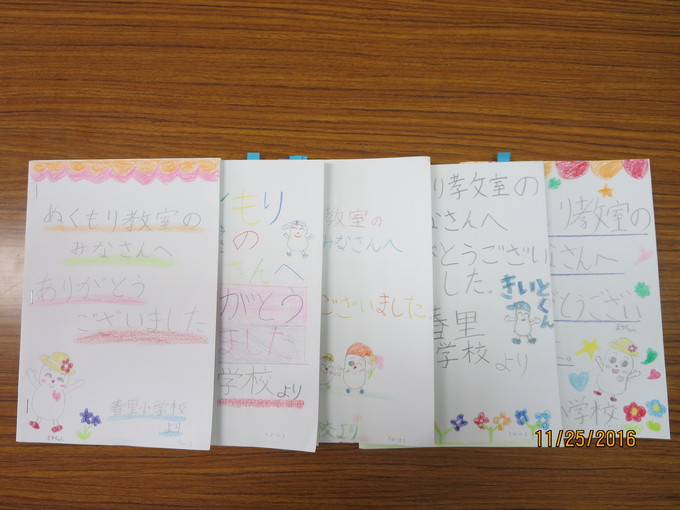 ぬくもり教室の
みなさんへ
ありがとう
ございました
春里小学校
より
くもり
の
さんへ
がとう
ました
学校より
教室の
みなさんへ
ございました。
より
り孝文室の
なさんへ
がとうござい
した。
きいとくん
春里
学校より
り教室の
なさんへ
とうござい
小学校
11/25/2016